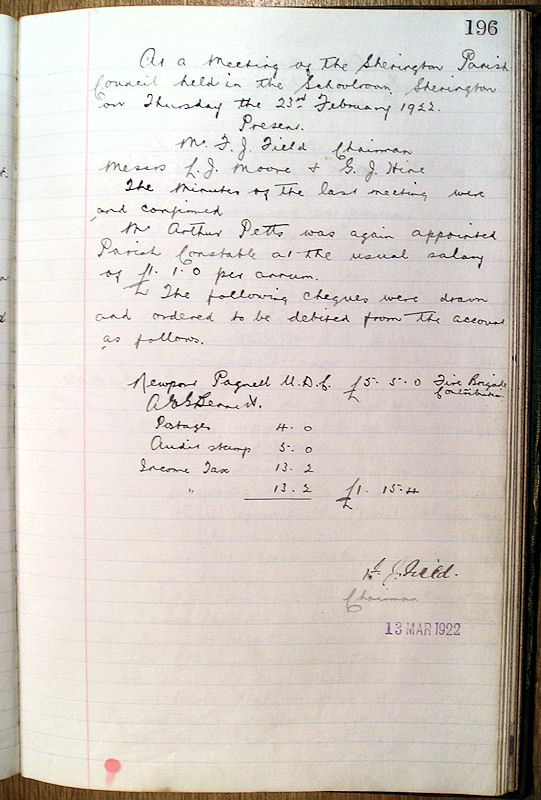 196
At a Meeting of the Sherington Parish
Council held in the Schoolroom Sherington
on Thursday the 23rd February 1922.
Present.
Mr F. J. Field Chairman
Messrs L. J. Moore & G. J. Hine
The Minutes of the last meeting were
and confirmed
Mr Arthur Petts was again appointed
Parish Constable at the usual salary
of £1. 1. 0 per annum.
The following cheques were drawn
and ordered to be debited from the account
as follows.
Newport Pagnell U.D.C. £5. 5. 0 Fire Brigade
Contribution
Bennett.
Postages 4. 0
Audit stamp 5. 0
Income Tax 13. 2
" 13. 2 £1. 15. 4
F. J. Field.
Chairman
13 MAR 1922